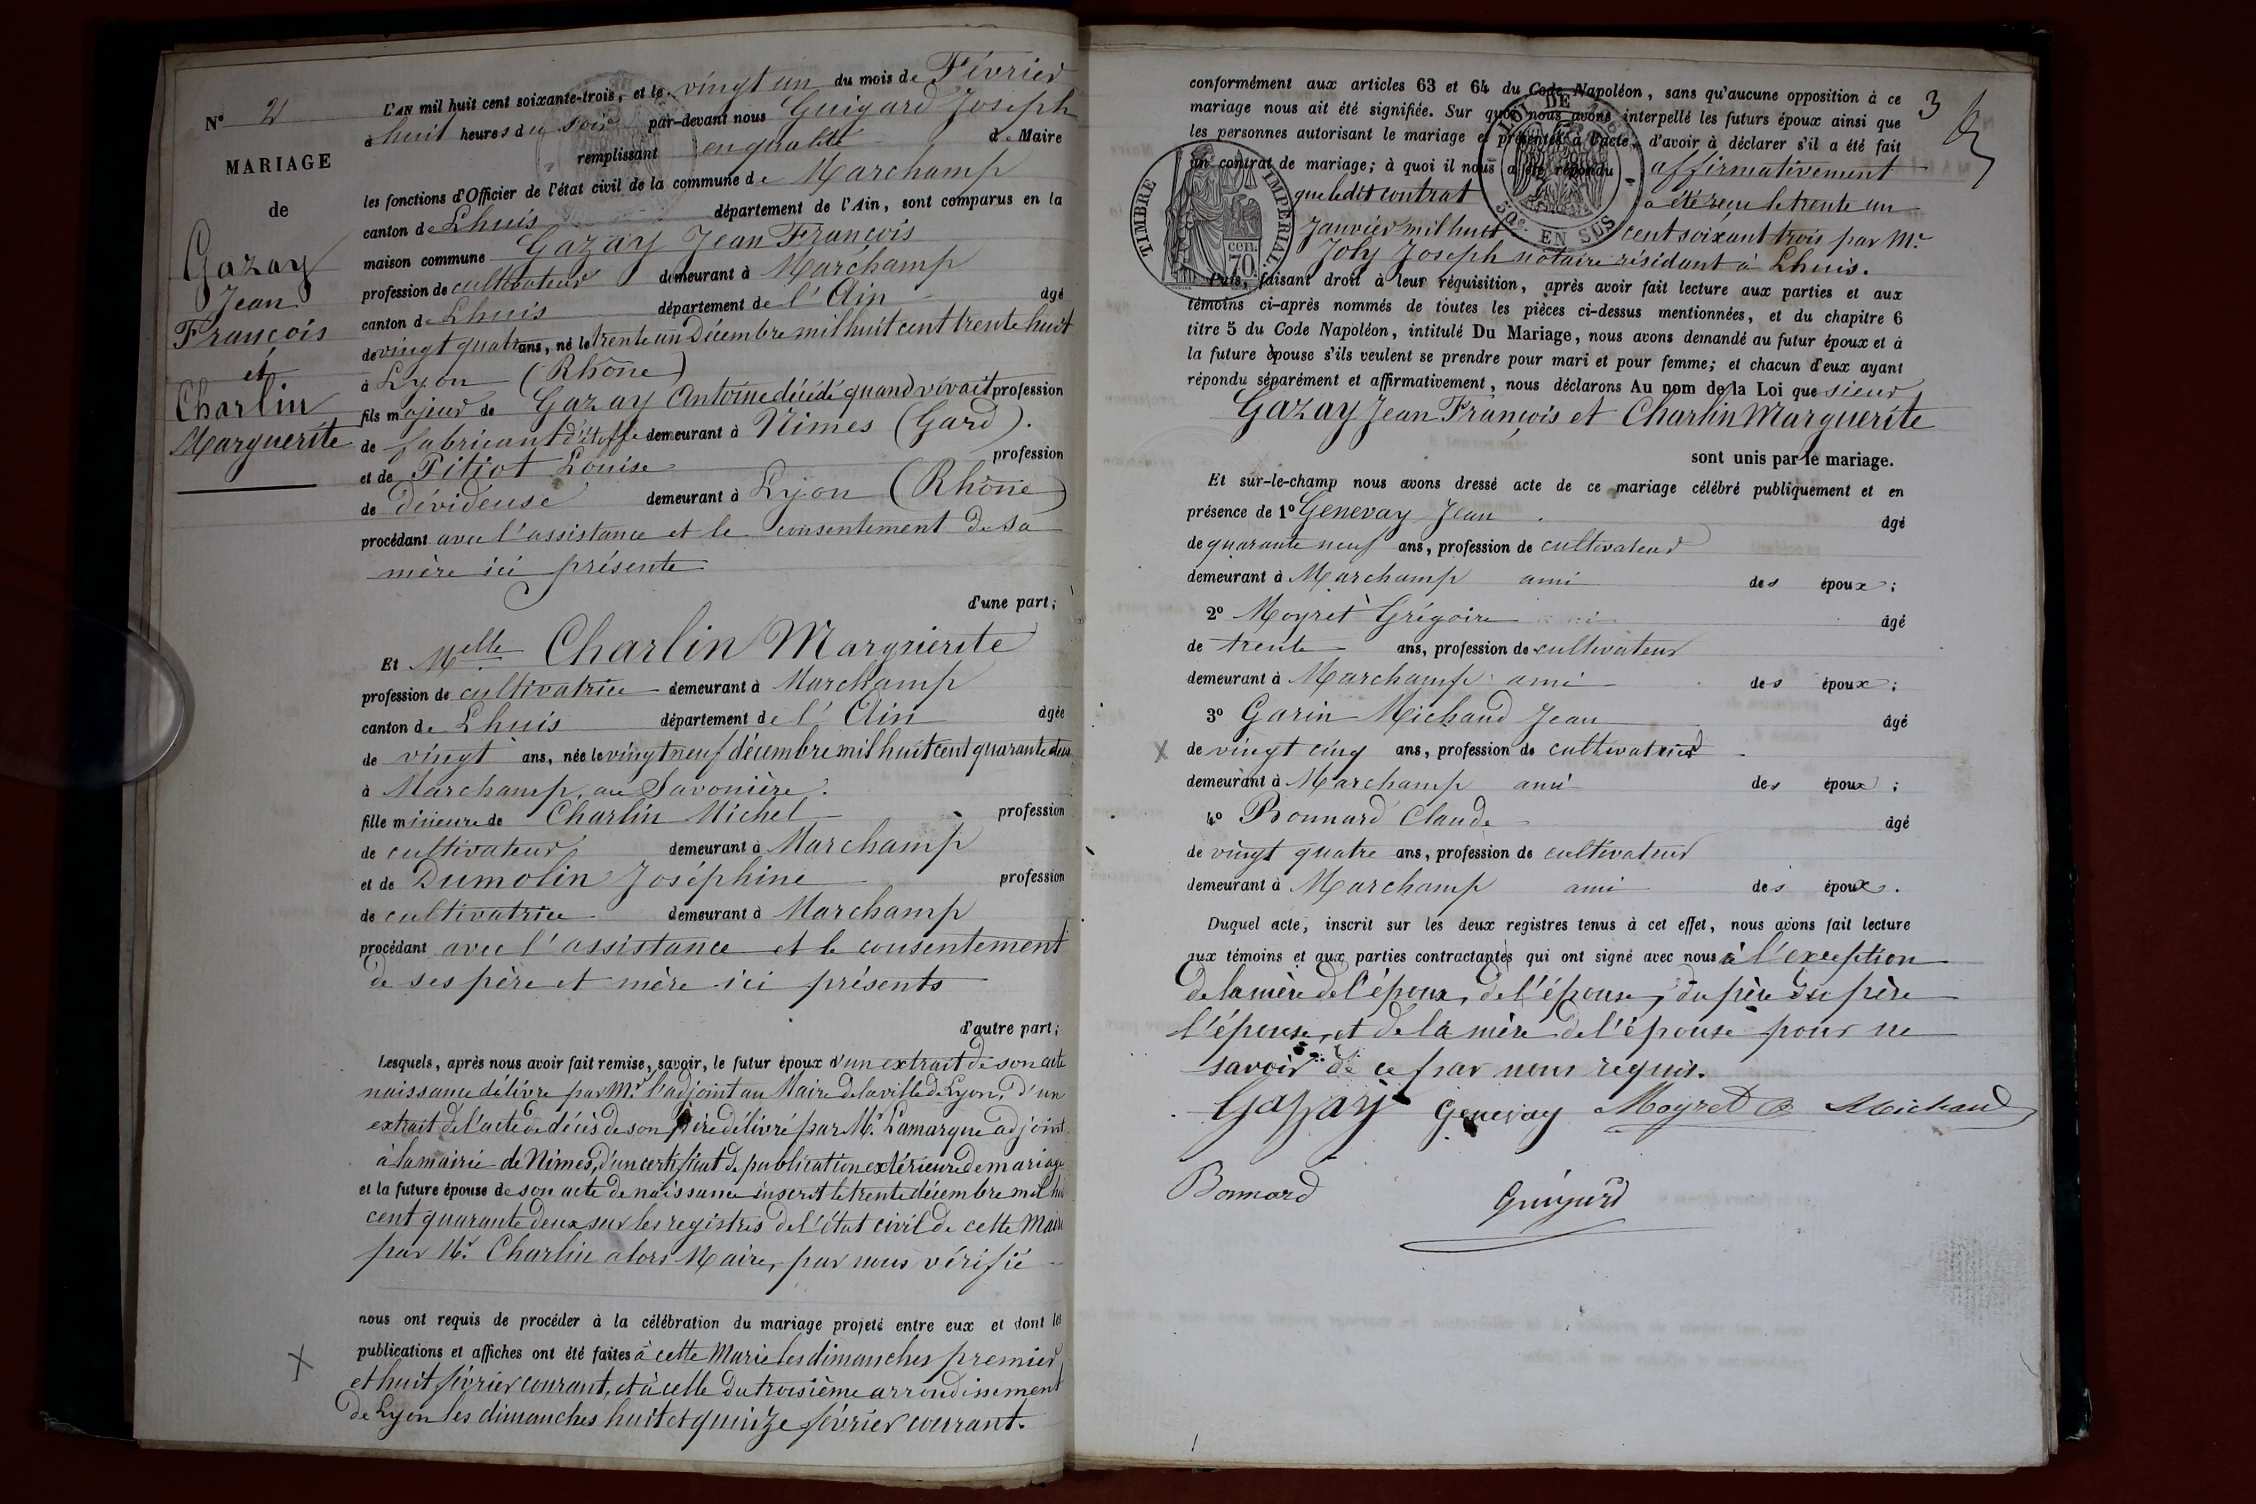 N° 2
MARIAGE
de
Gazay
Jean
François
et
Charlin
Marguerite
L'AN mil huit cent soixante-trois, et le vingt un du mois de Février
à huit heures du soir par-devant nous Guigard Joseph
remplissant en qualité de Maire
les fonctions d'Officier de l'état civil de la commune de Marchamp
canton de Lhuis département de l'Ain, sont comparus en la
maison commune Gazay Jean François
profession de cultivateur demeurant à Marchamp
canton de Lhuis département de l'Ain âgé
de vingt quatre ans, né le trente un Décembre mil huit cent trente huit
à Lyon (Rhône)
fils majeur de Gazay Antoine décédé quand vivait profession
de fabricant d'étoffe demeurant à Nimes (Gard).
et de Pitiot Louise profession
de dévideuse demeurant à Lyon (Rhône)
procédant avec l'assistance et le consentement de sa
mère ici présente
d'une part;
Et Melle Charlin Marguerite
profession de cultivatrice demeurant à Marchamp
canton de Lhuis département de l'Ain âgée
de vingt ans, née le vingt neuf décembre mil huit cent quarante deux
à Marchamp, au Savonière.
fille mineure de Charlin Michel profession
de cultivateur demeurant à Marchamp
et de Dumolin Joséphine profession
de cultivatrice demeurant à Marchamp
procédant avec l'assistance et le consentement
de ses père et mère ici présents
d'autre part;
Lesquels, après nous avoir fait remise, savoir, le futur époux d'un extrait de son acte
naissance délivre par Mr l'adjoint au Maire de la ville de Lyon, d'un
extrait de l'acte de décès de son père délivré par Mr Lamarque adjoint
à la mairie de Nimes, d'un certificat de publication extérieure de mariage
et la future épouse de son acte de naissance inscrit le trente décembre mil hui
cent quarante deux sur les registres de l'état civil de cette Mairie
par Mr Charlin alors Maire, par nous vérifié
nous ont requis de procéder à la célébration du mariage projeté entre eux et dont les
publications et affiches ont été faites à cette Marie les dimanches premier
et huit février courant, et à celle du troisième arrondissement
de Lyon les dimanches huit et quinze février courrant.
3
conformément aux articles 63 et 64 du Code Napoléon, sans qu'aucune opposition à ce
mariage nous ait été signifiée. Sur quoi nous avons interpellé les futurs époux ainsi que
les personnes autorisant le mariage et présentes à l'acte, d'avoir à déclarer s'il a été fait
un contrat de mariage; à quoi il nous a été répondu affirmativement
que le dit contrat a été reçu le trente un
Janvier mil huit cent soixant trois par Mr
Joly Joseph notaire résidant à Lhuis.
TIMBRE IMPÉRIAL
cen. 70.
LOI DE
50c. EN SUS
Puis, faisant droit à leur réquisition, après avoir fait lecture aux parties et aux
témoins ci-après nommés de toutes les pièces ci-dessus mentionnées, et du chapitre 6
titre 5 du Code Napoléon, intitulé Du Mariage, nous avons demandé au futur époux et à
la future épouse s'ils veulent se prendre pour mari et pour femme; et chacun d'eux ayant
répondu séparément et affirmativement, nous déclarons Au nom de la Loi que sieur
Gazay Jean François et Charlin Marguerite
sont unis par le mariage.
Et sur-le-champ nous avons dressé acte de ce mariage célébré publiquement et en
présence de 1° Genevay Jean âgé
de quarante neuf ans, profession de cultivateur
demeurant à Marchamp ami des époux;
2° Moyret Grégoire âgé
de trente ans, profession de cultivateur
demeurant à Marchamp ami des époux;
3° Garin Michaud Jean âgé
de vingt cinq ans, profession de cultivateur
demeurant à Marchamp ami des époux;
4° Bonnard Claude âgé
de vingt quatre ans, profession de cultivateur
demeurant à Marchamp ami des époux.
Duquel acte, inscrit sur les deux registres tenus à cet effet, nous avons fait lecture
aux témoins et aux parties contractantes qui ont signé avec nous à l'exception
de la mère de l'époux, de l'épouse, du père du père
l'épouse, et de la mère de l'épouse pour ne
savoir de ce par nous requis.
Gazay Genevay Moyret G Michaud
Bonnard Guigard